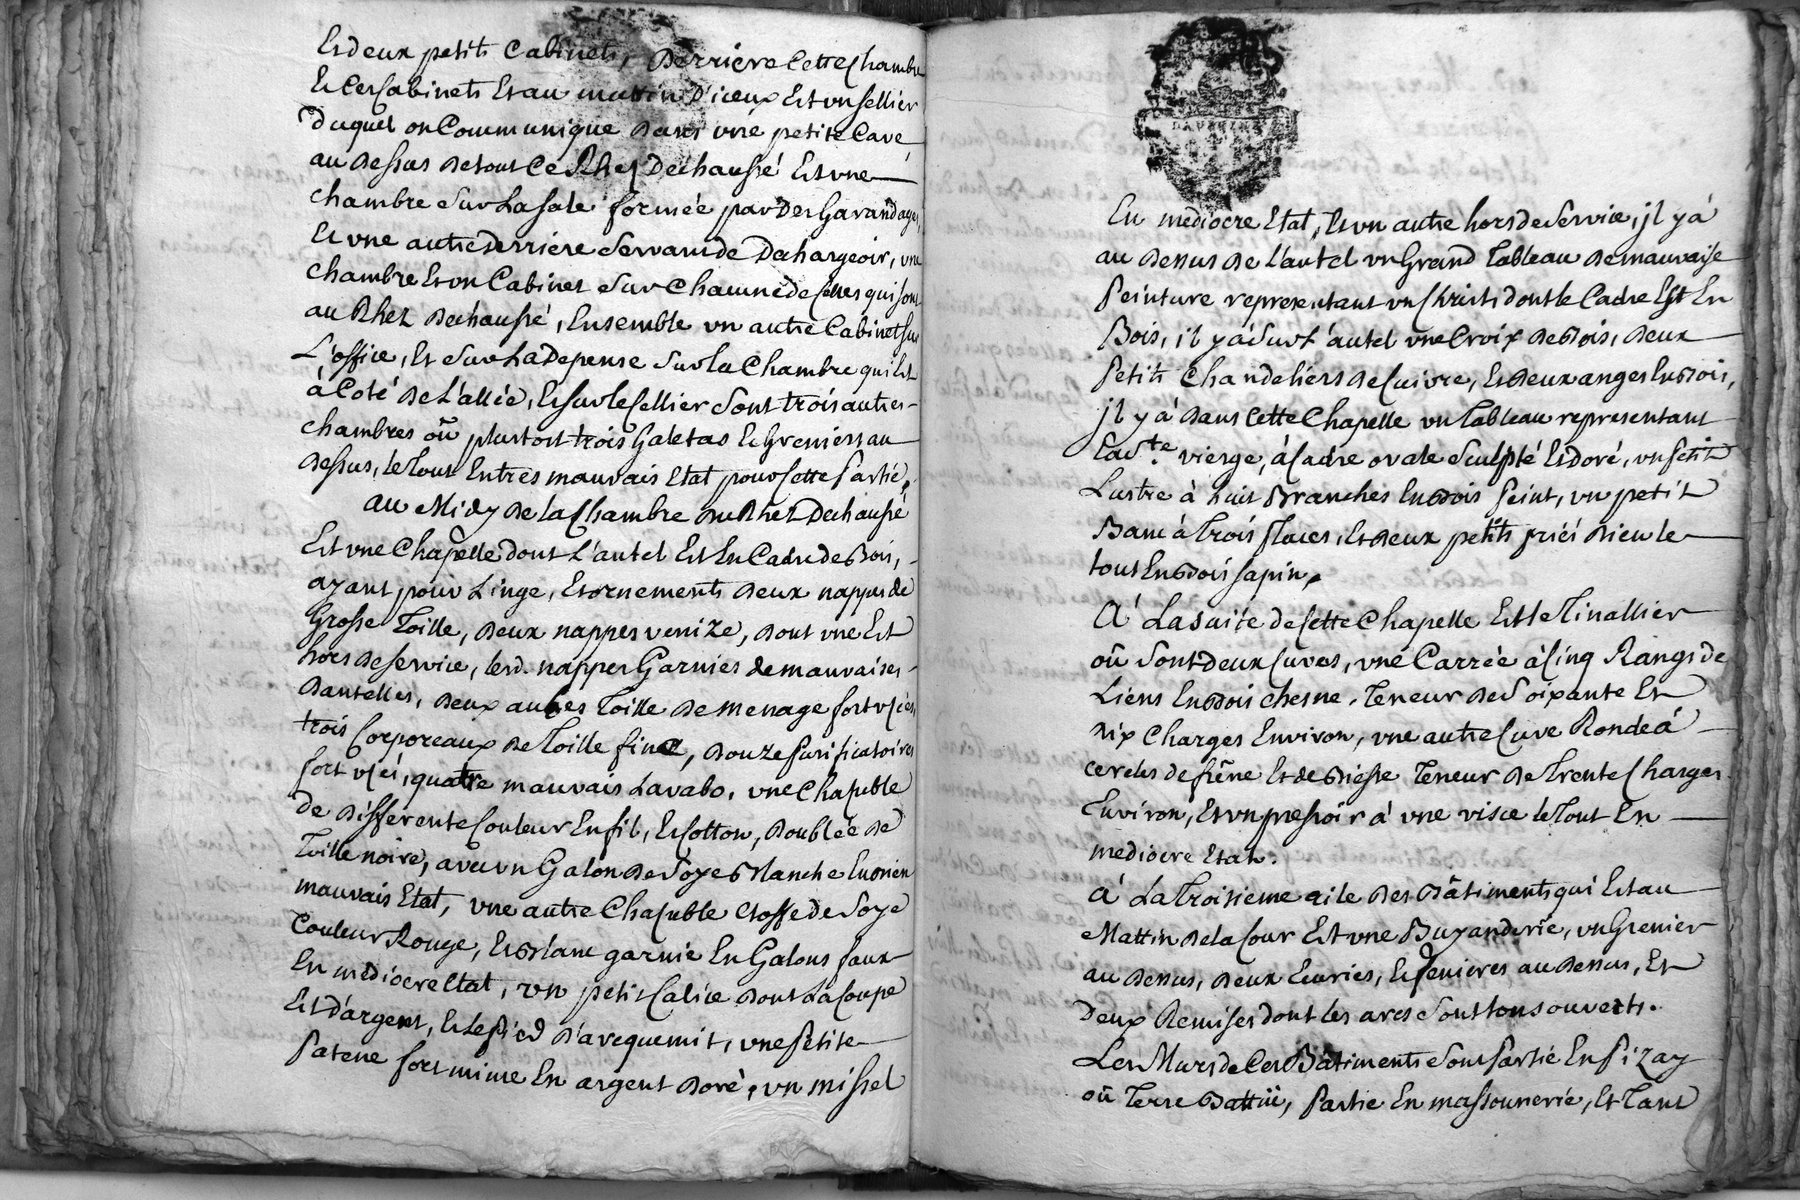 Et deux petits Cabinets, Derriere Cette Chambre
Et Ces Cabinets Et au mattin D'iceux Est un sellier
Duquel on Communique Dans une petite Cave,
au Dessus De tout Ce Rhez Dechaussé Est une
chambre Sur La sale formée par Des Garandages,
Et une autre Derriere Servant de Dechargeoir, une
chambre Et un Cabinet Sur Chacune de Celles qui sont
au Rhez Dechaussé, Ensemble un autre Cabinet sur
L'office, Et Sur La Depense Sur la Chambre qui Est
à Coté De L'allée, Et sur le sellier Sont trois autres
chambres oû plustost trois Galetas Et Greniers au
Dessus, le Tout En tres mauvais Etat pour Cette Partie,
au Midy De la Chambre Du Rhez Dechaussé
Est une Chapelle dont L'autel Est En Cadre de Bois,
ayant pour Linge, Et ornements Deux nappes de
Grosse Toille, Deux nappes venize, Dont une Est
hors De service, lesd. nappes Garnies de mauvaises
Dantelles, Deux aubes Toille De menage fort usées,
trois Corporeaux De Toille fine, Douze Purificatoires
fort usés, quatre mauvais Lavabo, une Chasuble
de Differente Couleur En fil, Et Cotton, Doublée De
Toille noire, avec un Galon De Soye Blanche En bien
mauvais Etat, une autre Chasuble Etoffe de Soye
Couleur Rouge, Et Blanc garnie En Galons faux
En mediocre Etat, un petit Calice Dont La Coupe
Est D'argent, Et le Pied D'arequemit, une Petite
Patene fort mince En argent Doré, un missel
DAUPHINE
En mediocre Etat, Et un autre hors de Service, il y à
au Dessus De L'autel un Grand Tableau De mauvaise
Peinture representant un Christ, dont le Cadre Est En
Bois, il y à Sur L'autel une Croix De Bois, Deux
Petits Chandeliers De Cuivre, Et Deux anges En Bois,
il y à Dans Cette Chapelle un Tableau representant
La Ste. vierge, à Cadre ovale Sculpté Et Doré, un Petit
Lustre à huit Branches En Bois Peint, un petit
Banc à Trois Places, Et Deux petits priés Dieu le
tout En Bois sapin,
A La Suite de Cette Chapelle Est le Tinallier
oû Sont Deux Cuves, une Carrée à Cinq Rangs de
Liens En Bois chesne, Teneur De Soixante Et
Dix Charges Environ, une autre Cuve Ronde à
cercles de frêne Et de Biesse Teneur De Trente Charges
Environ, Et un pressoir à une visce le Tout En
mediocre Etat.
A La Troisieme aile Des Bâtiments qui Est au
Mattin De la Cour Est une Buyanderie, un Grenier
au Dessus, Deux Ecuries, Et fenieres au Dessus, Et
Deux Remises dont les arcs Sont tous ouverts.
Les Murs de Ces Bâtiments Sont Partie En Pizay
oû Terre Battüe, Partie En massonnerie, Et Tant